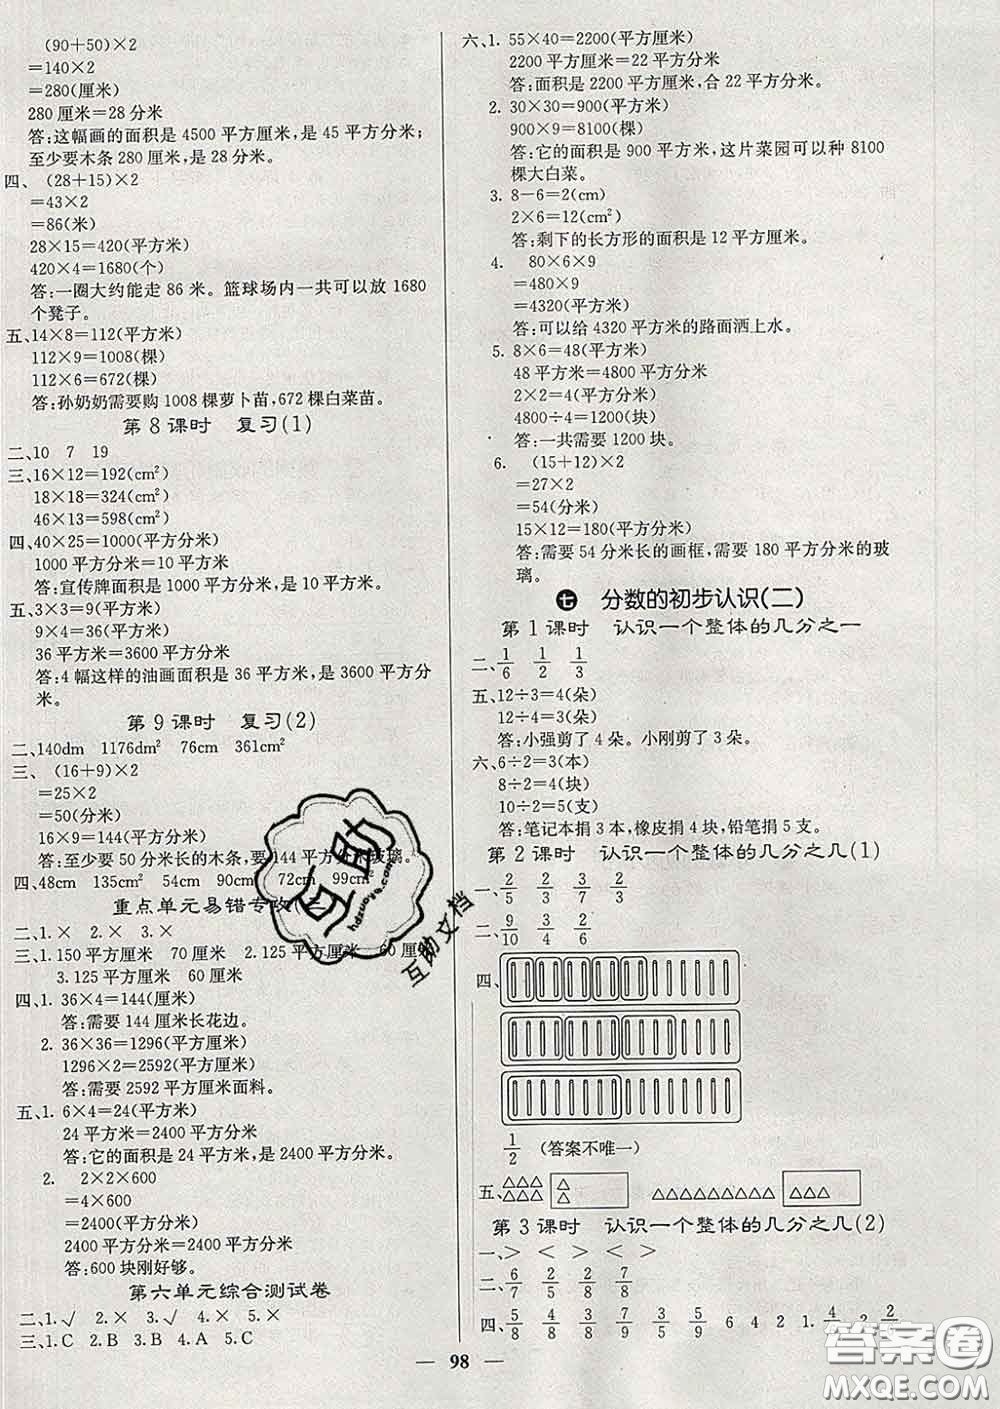 (90+50)×2
=140×2
=280(厘米)
280 厘米=28 分米
答:这幅画的面积是 4500 平方厘米,是 45 平方分米;
至少要木条 280 厘米,是 28 分米。
四、 (28+15)×2
=43×2
=86(米)
28×15=420(平方米)
420×4=1680(个)
答:一圈大约能走 86 米。篮球场内一共可以放 1680
个凳子。
五、14×8=112(平方米)
112×9=1008(棵)
112×6=672(棵)
答:孙奶奶需要购 1008 棵萝卜苗,672 棵白菜苗。
第 8 课时 复习(1)
二、10 7 19
三、16×12=192(cm²)
18×18=324(cm²)
46×13=598(cm²)
四、40×25=1000(平方分米)
1000 平方分米=10 平方米
答:宣传牌面积是 1000 平方分米,是 10 平方米。
五、3×3=9(平方米)
9×4=36(平方米)
36 平方米=3600 平方分米
答:4 幅这样的油画面积是 36 平方米,是 3600 平方分
米。
第 9 课时 复习(2)
二、140dm 1176dm² 76cm 361cm²
三、 (16+9)×2
=25×2
=50(分米)
16×9=144(平方分米)
答:至少要 50 分米长的木条,要 144 平方分米玻璃。
四、48cm 135cm² 54cm 90cm² 72cm 99cm²
重点单元易错专攻(三)
二、1.× 2.× 3.×
三、1.150 平方厘米 70 厘米 2.125 平方厘米 60 厘米
3.125 平方厘米 60 厘米
四、1.36×4=144(厘米)
答:需要 144 厘米长花边。
2. 36×36=1296(平方厘米)
1296×2=2592(平方厘米)
答:需要 2592 平方厘米面料。
五、1. 6×4=24(平方米)
24 平方米=2400 平方分米
答:它的面积是 24 平方米,是 2400 平方分米。
2. 2×2×600
=4×600
=2400(平方分米)
2400 平方分米=2400 平方分米
答:600 块刚好够。
第六单元综合测试卷
二、1.√ 2.× 3.√ 4.× 5.×
三、1.C 2.B 3.B 4.A 5.C
六、1. 55×40=2200(平方厘米)
2200 平方厘米=22 平方分米
答:面积是 2200 平方厘米,合 22 平方分米。
2. 30×30=900(平方米)
900×9=8100(棵)
答:它的面积是 900 平方米,这片菜园可以种 8100
棵大白菜。
3. 8-6=2(cm)
2×6=12(cm²)
答:剩下的长方形的面积是 12 平方厘米。
4. 80×6×9
=480×9
=4320(平方米)
答:可以给 4320 平方米的路面洒上水。
5. 8×6=48(平方米)
48 平方米=4800 平方分米
2×2=4(平方分米)
4800÷4=1200(块)
答:一共需要 1200 块。
6. (15+12)×2
=27×2
=54(分米)
15×12=180(平方分米)
答:需要 54 分米长的画框,需要 180 平方分米的玻
璃。
七 分数的初步认识(二)
第 1 课时 认识一个整体的几分之一
二、1/6 1/2 1/3
五、12÷3=4(朵)
12÷4=3(朵)
答:小强剪了 4 朵。小刚剪了 3 朵。
六、6÷2=3(本)
8÷2=4(块)
10÷2=5(支)
答:笔记本捐 3 本,橡皮捐 4 块,铅笔捐 5 支。
第 2 课时 认识一个整体的几分之几(1)
一、2/5 2/3 3/7 2/3
二、9/10 3/4 2/6
四、
1/2 (答案不唯一)
五、
第 3 课时 认识一个整体的几分之几(2)
一、> < > <
二、6/7 2/5 2/8 7/8
四、5/8 4/8 3/7 7/9 5/9 5/9 6 4 2 1.
98
互助
hdzuoye.com
互助文档
答案圈
MXQE.COM